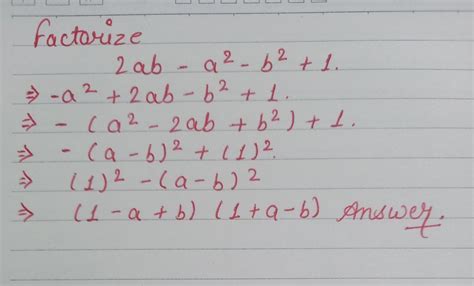 Factorize
2ab - a² - b² + 1.
⇒ -a² + 2ab - b² + 1.
⇒ - (a² - 2ab + b²) + 1.
⇒ - (a - b)² + (1)².
⇒ (1)² - (a - b)²
⇒ (1 - a + b) (1 + a - b) Answer.